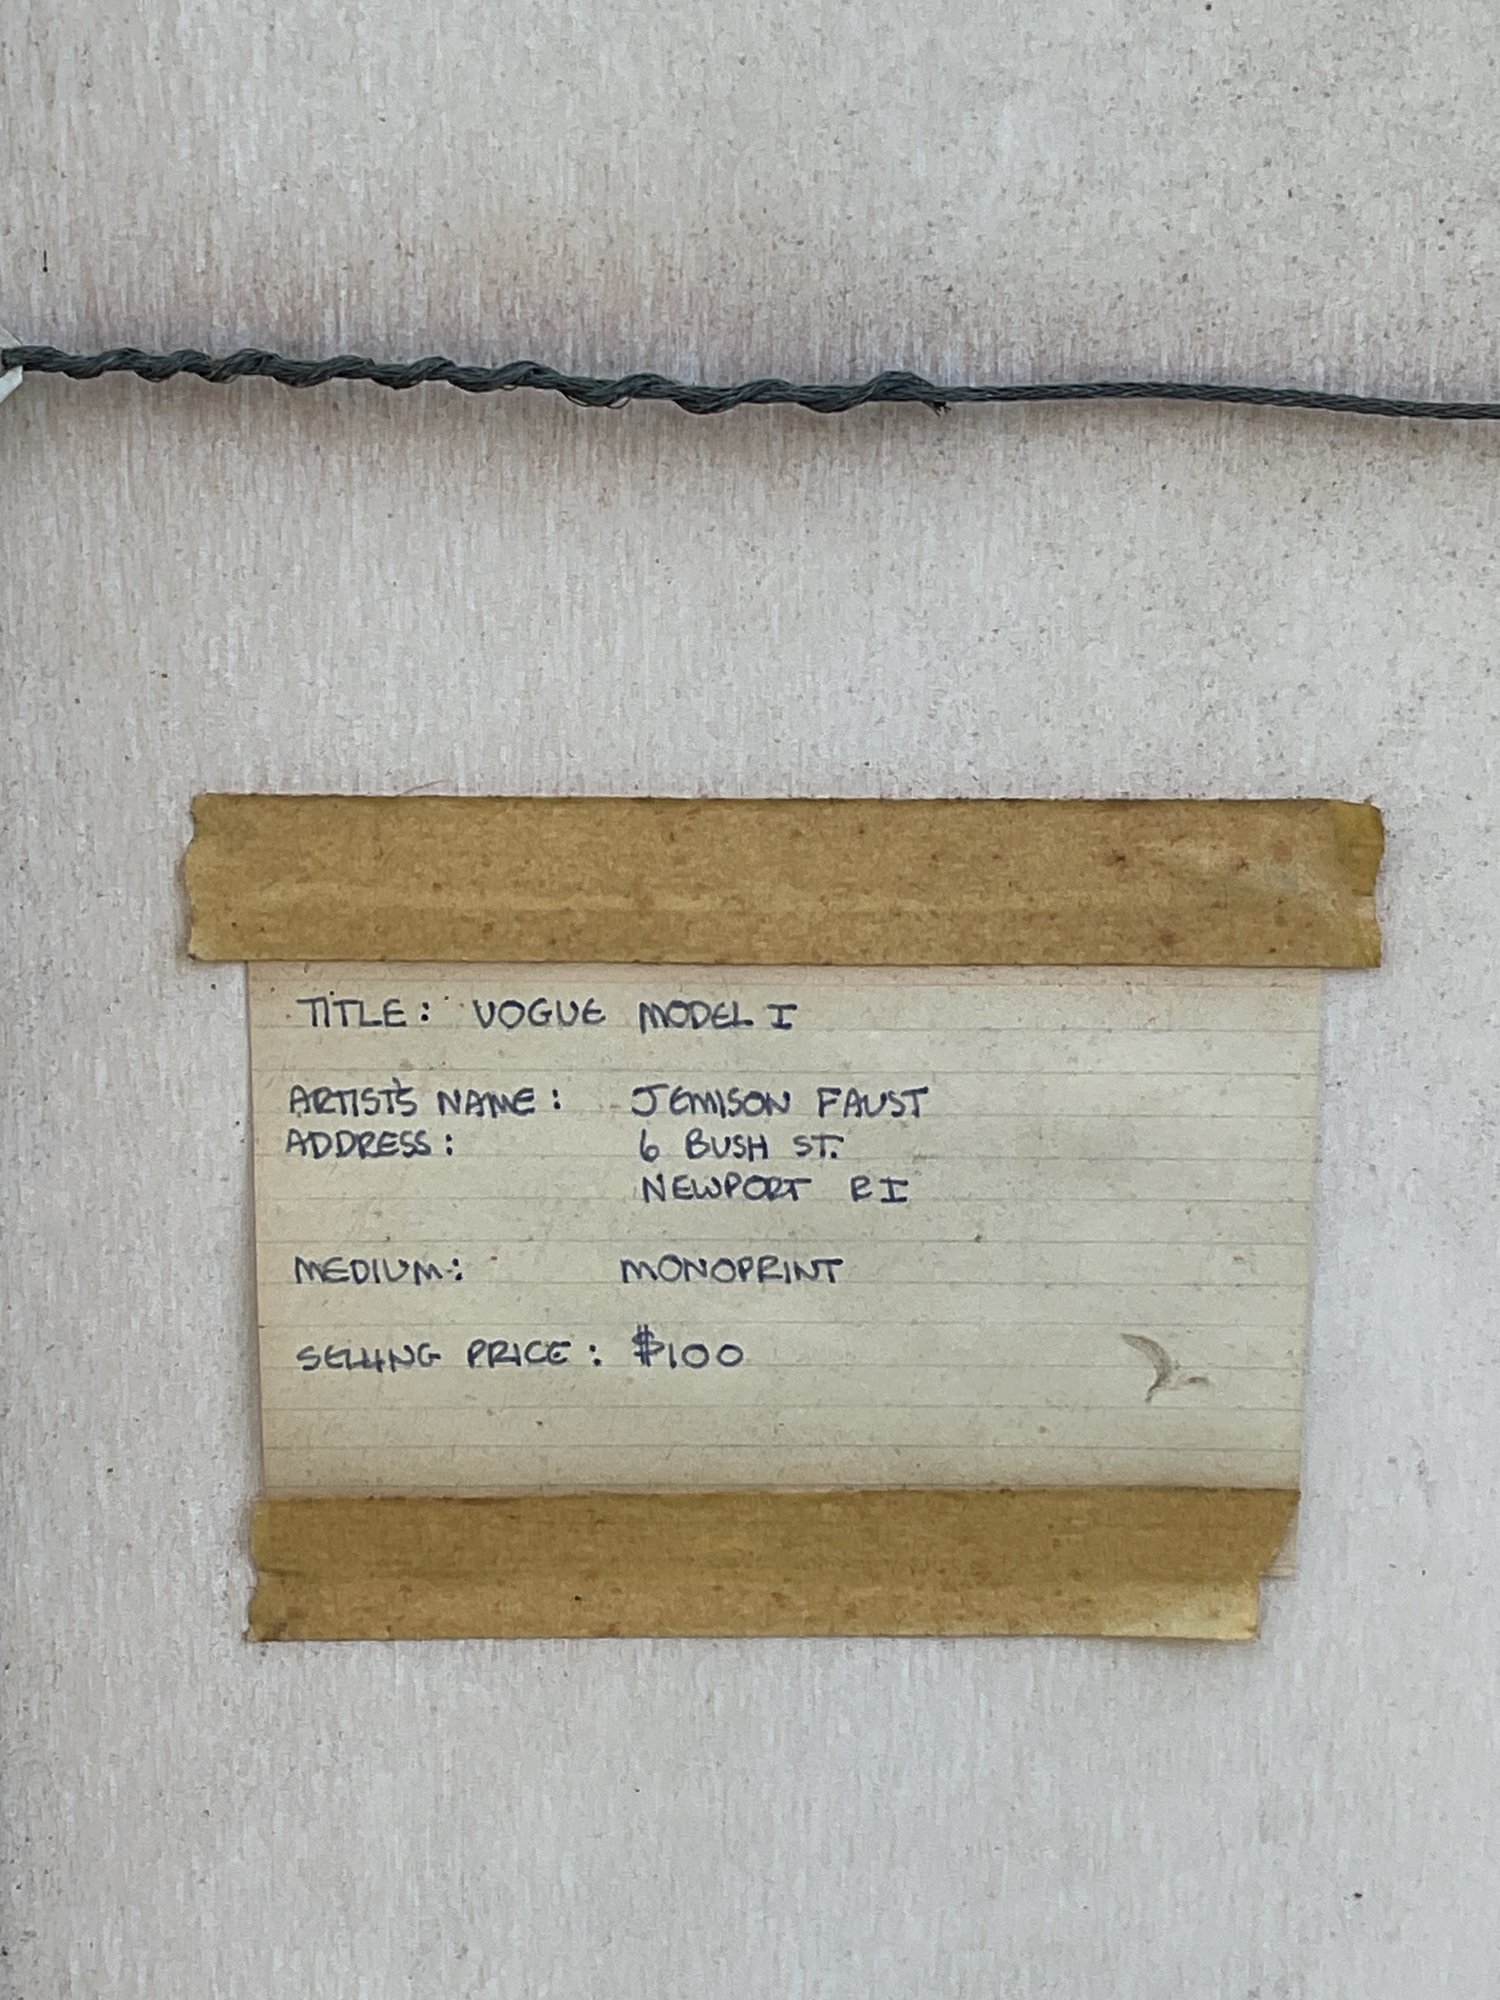 TITLE: VOGUE MODEL I
ARTIST'S NAME: JEMISON FAUST
ADDRESS: 6 BUSH ST.
NEWPORT RI
MEDIUM: MONOPRINT
SELLING PRICE: $100